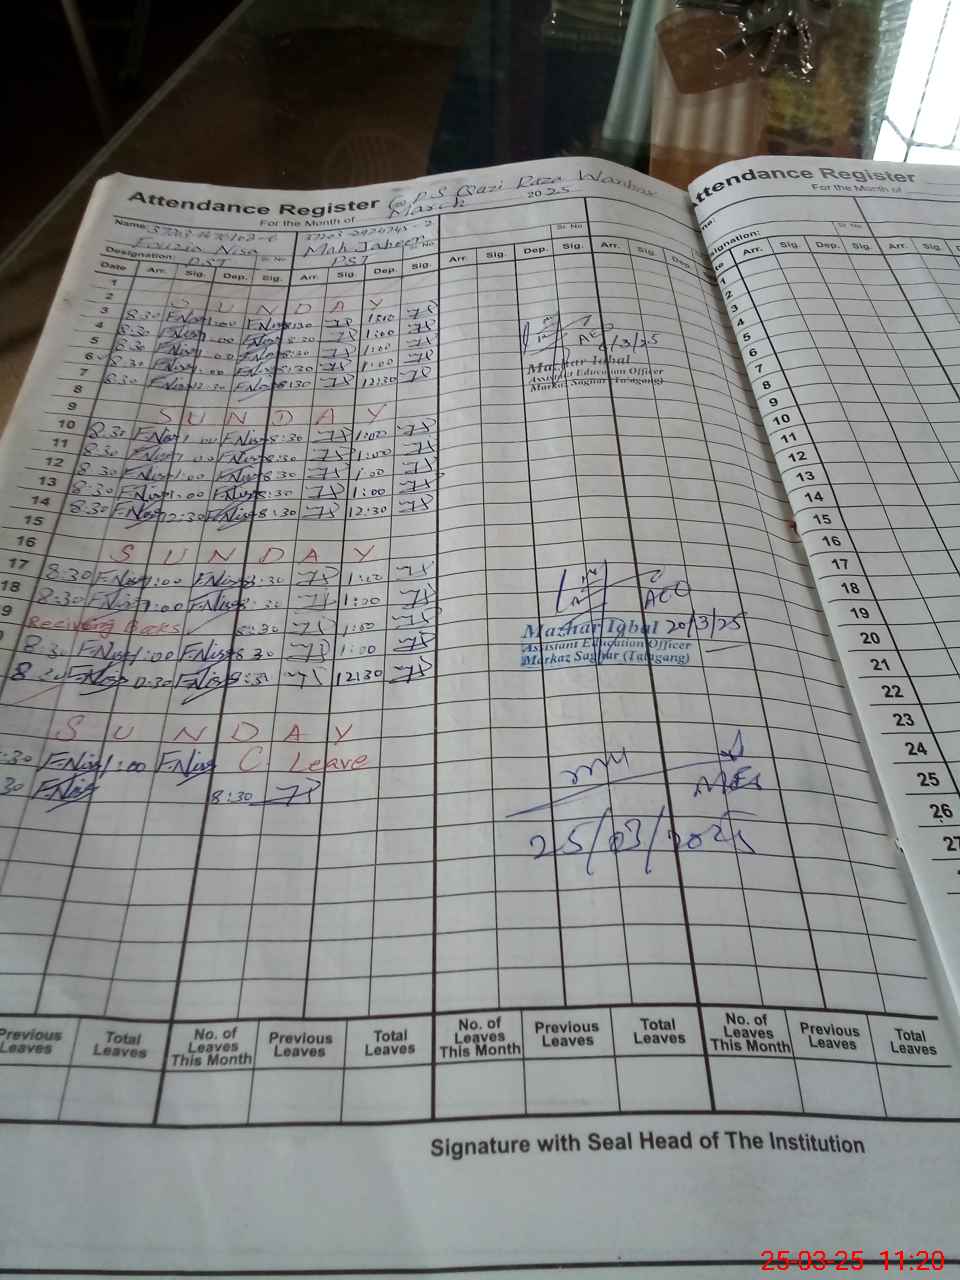 Attendance Register @ P.S Qazi Raza Wanhar
For the Month of March 2025
Name: Sr. No
Fouzia Nisa Mah Jabeen
Designation: PST Sr. No PST
Date Arr. Sig. Dep. Sig. Arr. Sig. Dep. Sig. Arr. Sig. Dep. Sig. Arr. Sig. Dep.
1
2 SUNDAY
3 8:30 FNisa 1:00 FNisa 8:30 1:00
4 8:30 FNisa 1:00 FNisa 8:30 1:00
5 8:30 FNisa 1:00 FNisa 8:30 1:00
6 8:30 FNisa 1:00 FNisa 8:30 1:00
7 8:30 FNisa 12:30 FNisa 8:30 12:30
8
9 SUNDAY
10 8:30 FNisa 1:00 FNisa 8:30 1:00
11 8:30 FNisa 1:00 FNisa 8:30 1:00
12 8:30 FNisa 1:00 FNisa 8:30 1:00
13 8:30 FNisa 1:00 FNisa 8:30 1:00
14 8:30 FNisa 12:30 FNisa 8:30 12:30
15
16 SUNDAY
17 8:30 FNisa 1:00 FNisa 8:30 1:00
18 8:30 FNisa 1:00 FNisa 8:30 1:00
9 Reciving Books 8:30 1:00
8:30 FNisa 1:00 FNisa 8:30 1:00
8:30 FNisa 12:30 FNisa 8:30 12:30
SUNDAY
:30 FNisa 1:00 FNisa C. Leave
30 FNisa 8:30
AEO
6/3/25
Mazhar Iqbal
Assistant Education Officer
Markaz Saghar (Talagang)
AEO
Mazhar Iqbal 20/3/25
Assistant Education Officer
Markaz Saghar (Talagang)
MEA
25/03/2025
Previous Leaves Total Leaves No. of Leaves This Month Previous Leaves Total Leaves No. of Leaves This Month Previous Leaves Total Leaves No. of Leaves This Month Previous Leaves Total Leaves
Signature with Seal Head of The Institution
ttendance Register
For the Month of
me: Sr. No
signation:
te Arr. Sig. Dep. Sig. Arr.
1
2
3
4
5
6
7
8
9
10
11
12
13
14
15
16
17
18
19
20
21
22
23
24
25
26
27
25-03-25 11:20